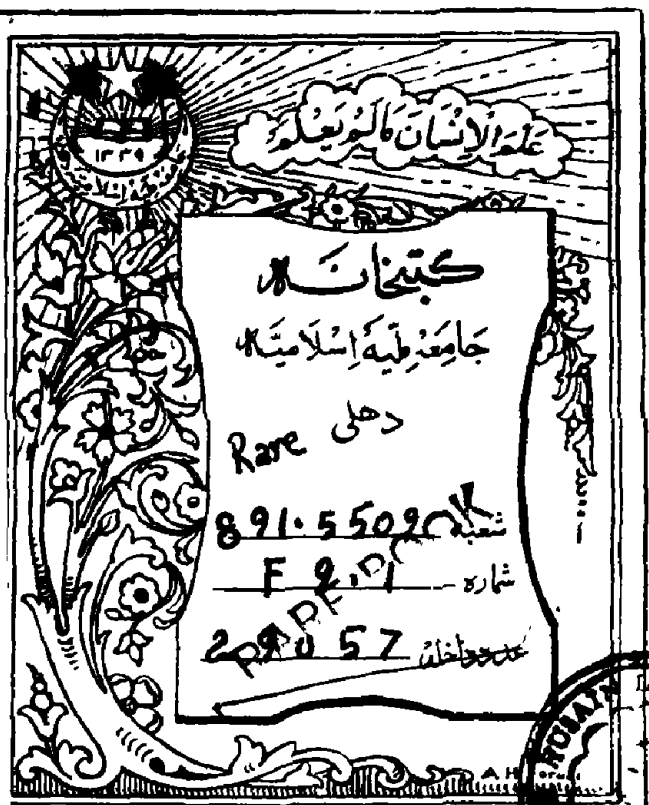 علم الانسان مالم يعلم
١٣٣٩
كتبخانہ
جامعہ ملیہ اسلامیہ
دهلی
Rare
شعبہ 891.5509
شماره F 9.1
عدد داخلہ 29057
RARE BOOK
HUSAIN